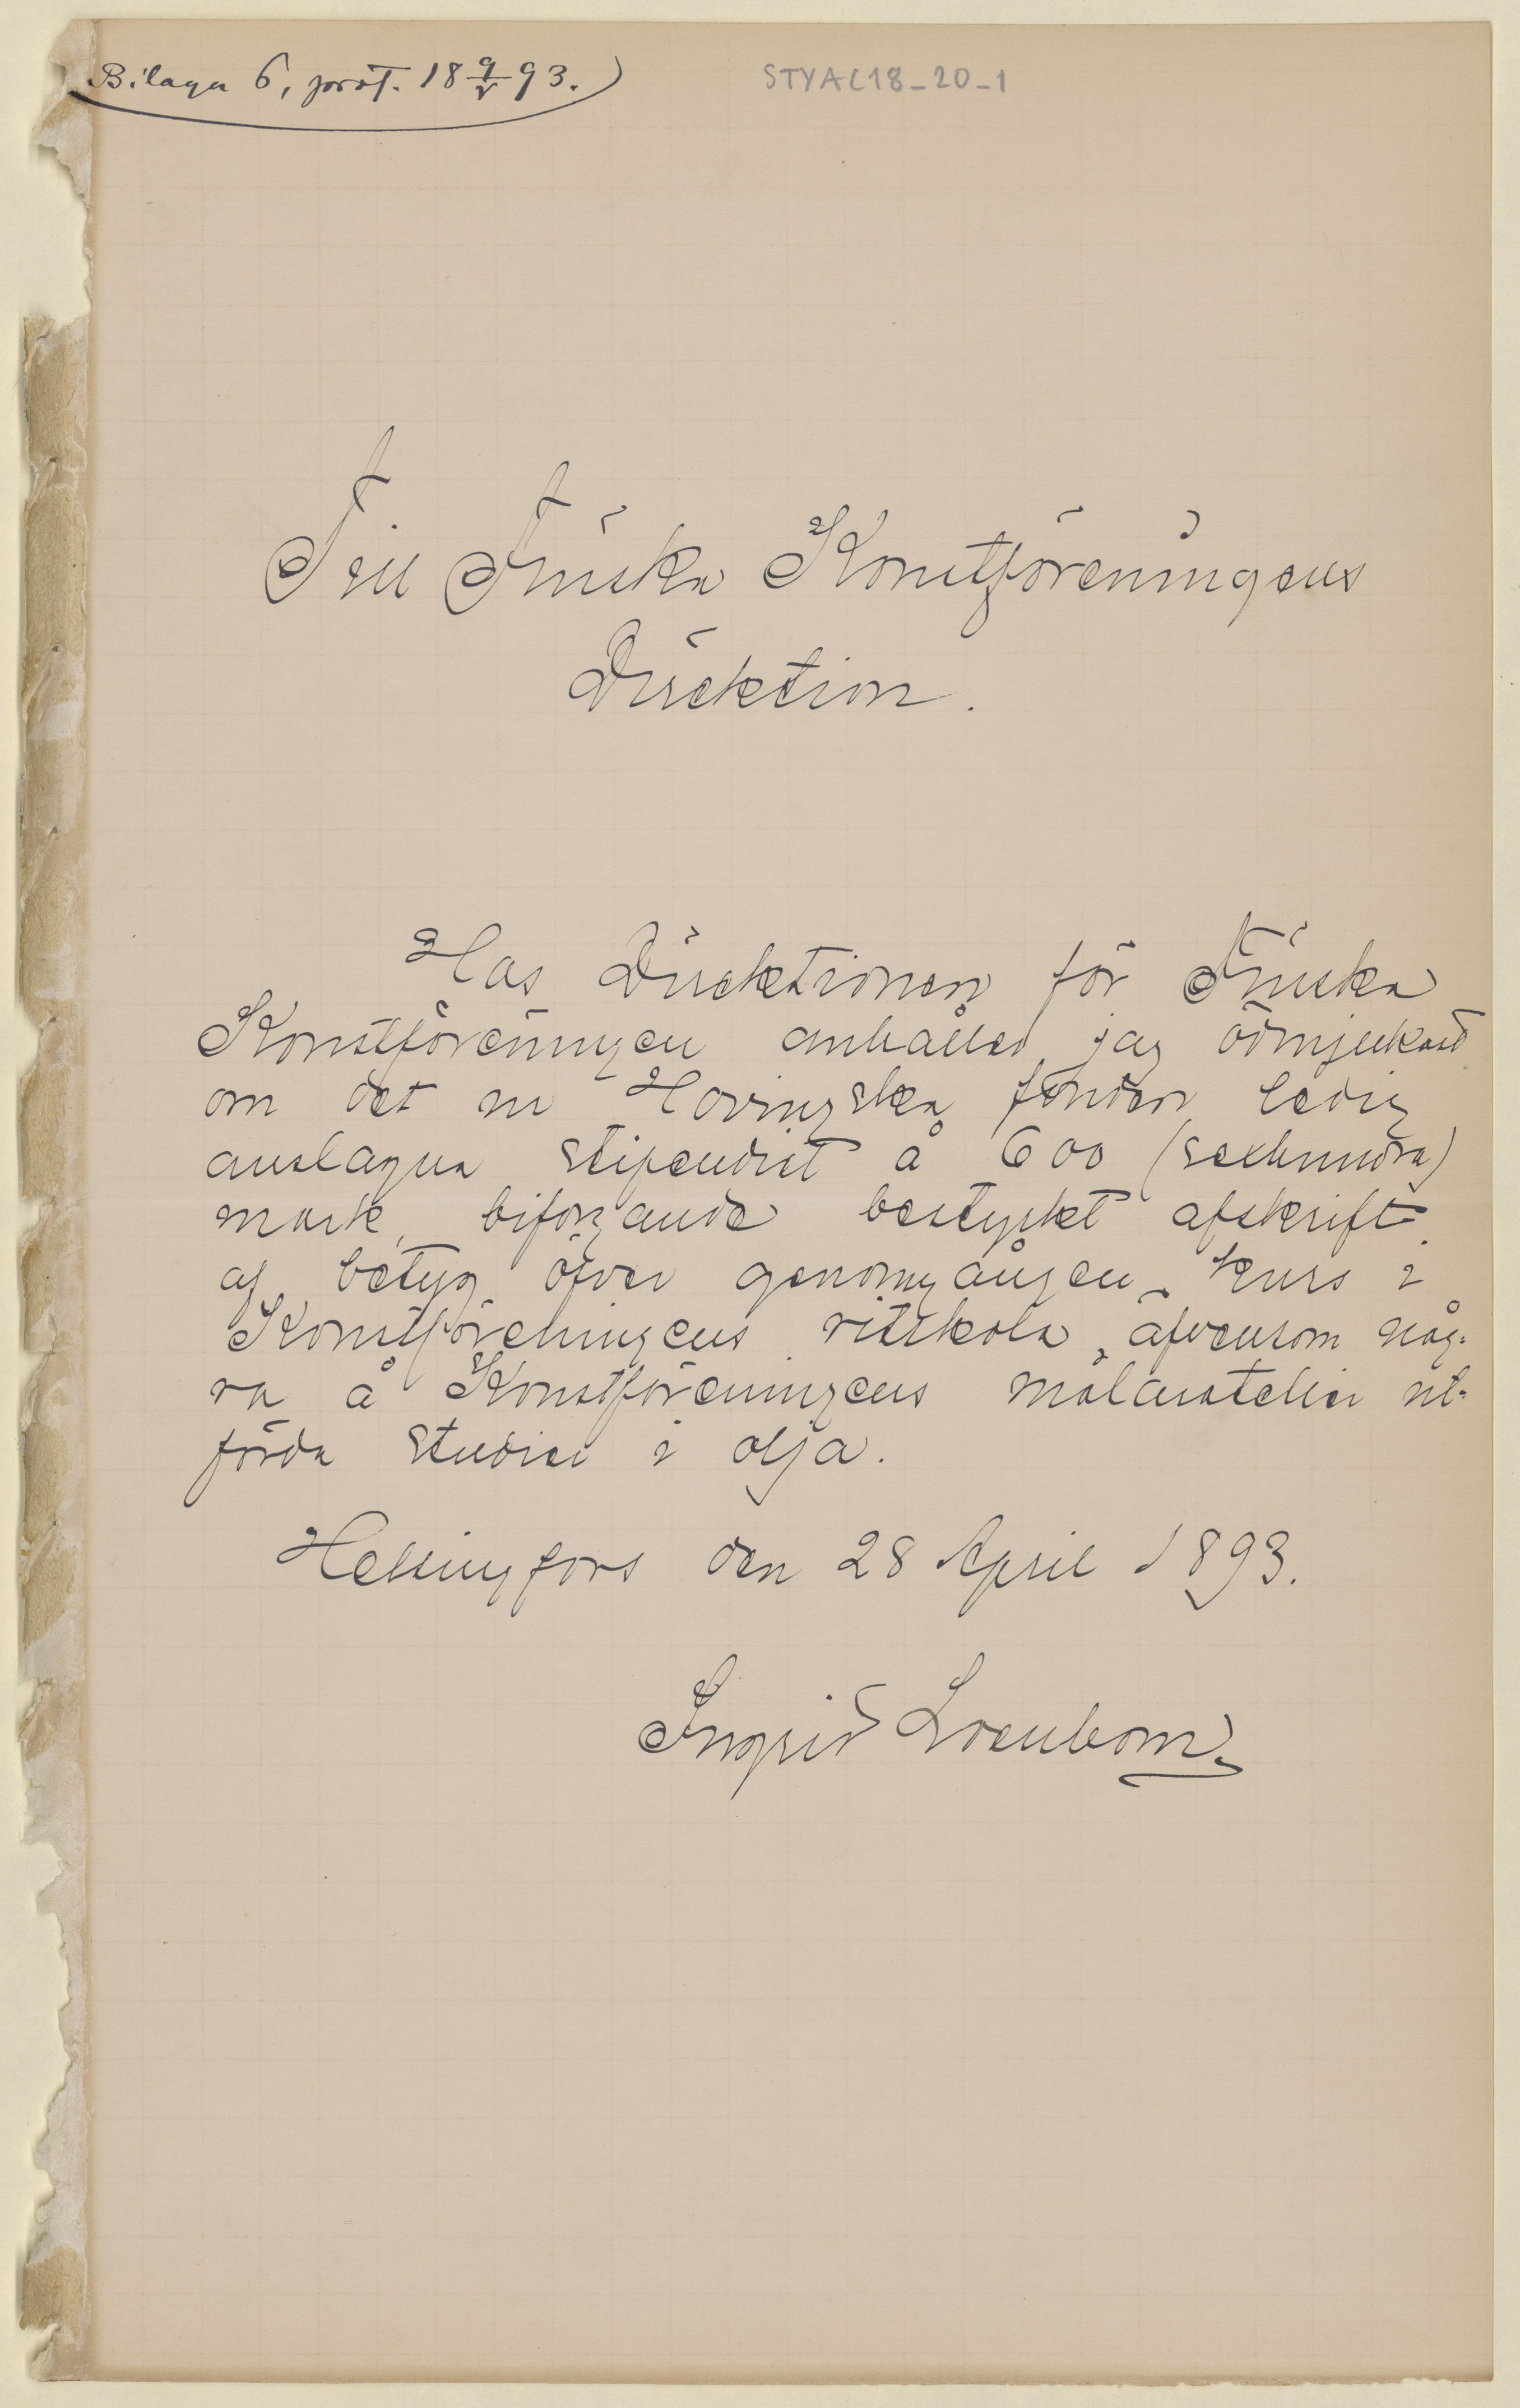 Bilaga 6, prot. 18 9/V 93.
STYAC18-20-1
Till Finska Konstföreningens
Direktion.
Hos Direktionen för Finska
Konstföreningen anhåller jag ödmjukast
om det ur Hovingska fonden ledig
anslagna stipendiet à 600 (sexhundra)
mark, bifogande bestyrkt afskrift
af betyg öfver genomgången kurs i
Konstföreningens ritskola, äfvensom någ-
ra å Konstföreningens målaratelier ut-
förda studier i olja.
Helsingfors den 28 April 1893.
Ingrid Loenbom.